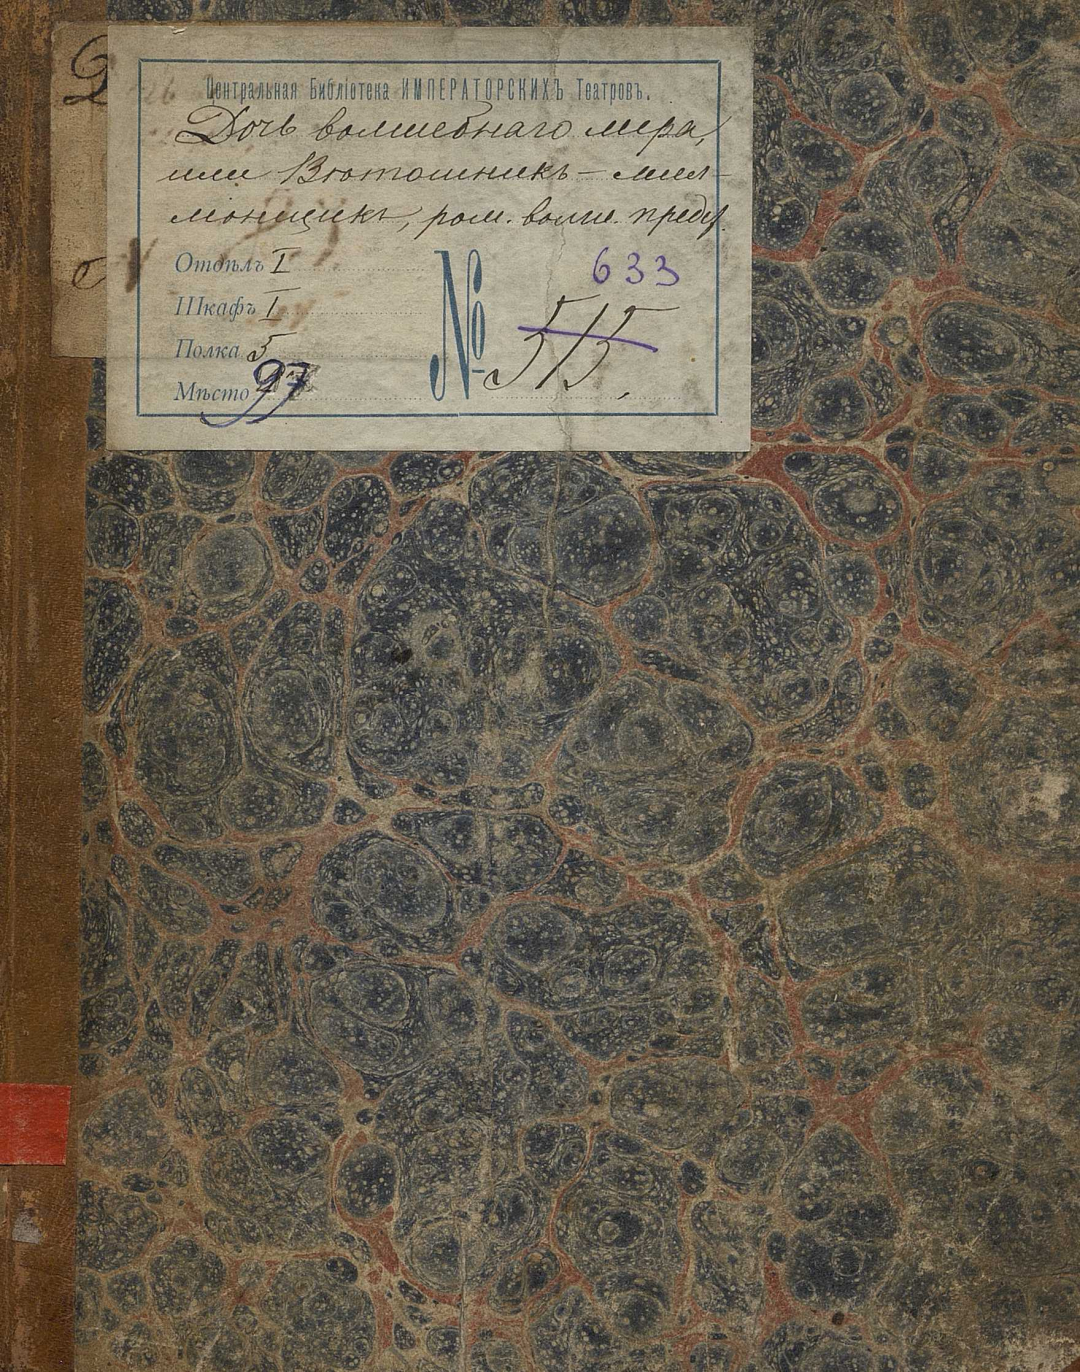 Центральная Библіотека ИМПЕРАТОРСКИХЪ Театровъ.
Дочь волшебнаго мира,
или Вѣтошникъ – мил-
ліонщикъ, ром. волш. предс.
Отдѣлъ I
Шкафъ I
Полка 5
Мѣсто 97
№ 515
633